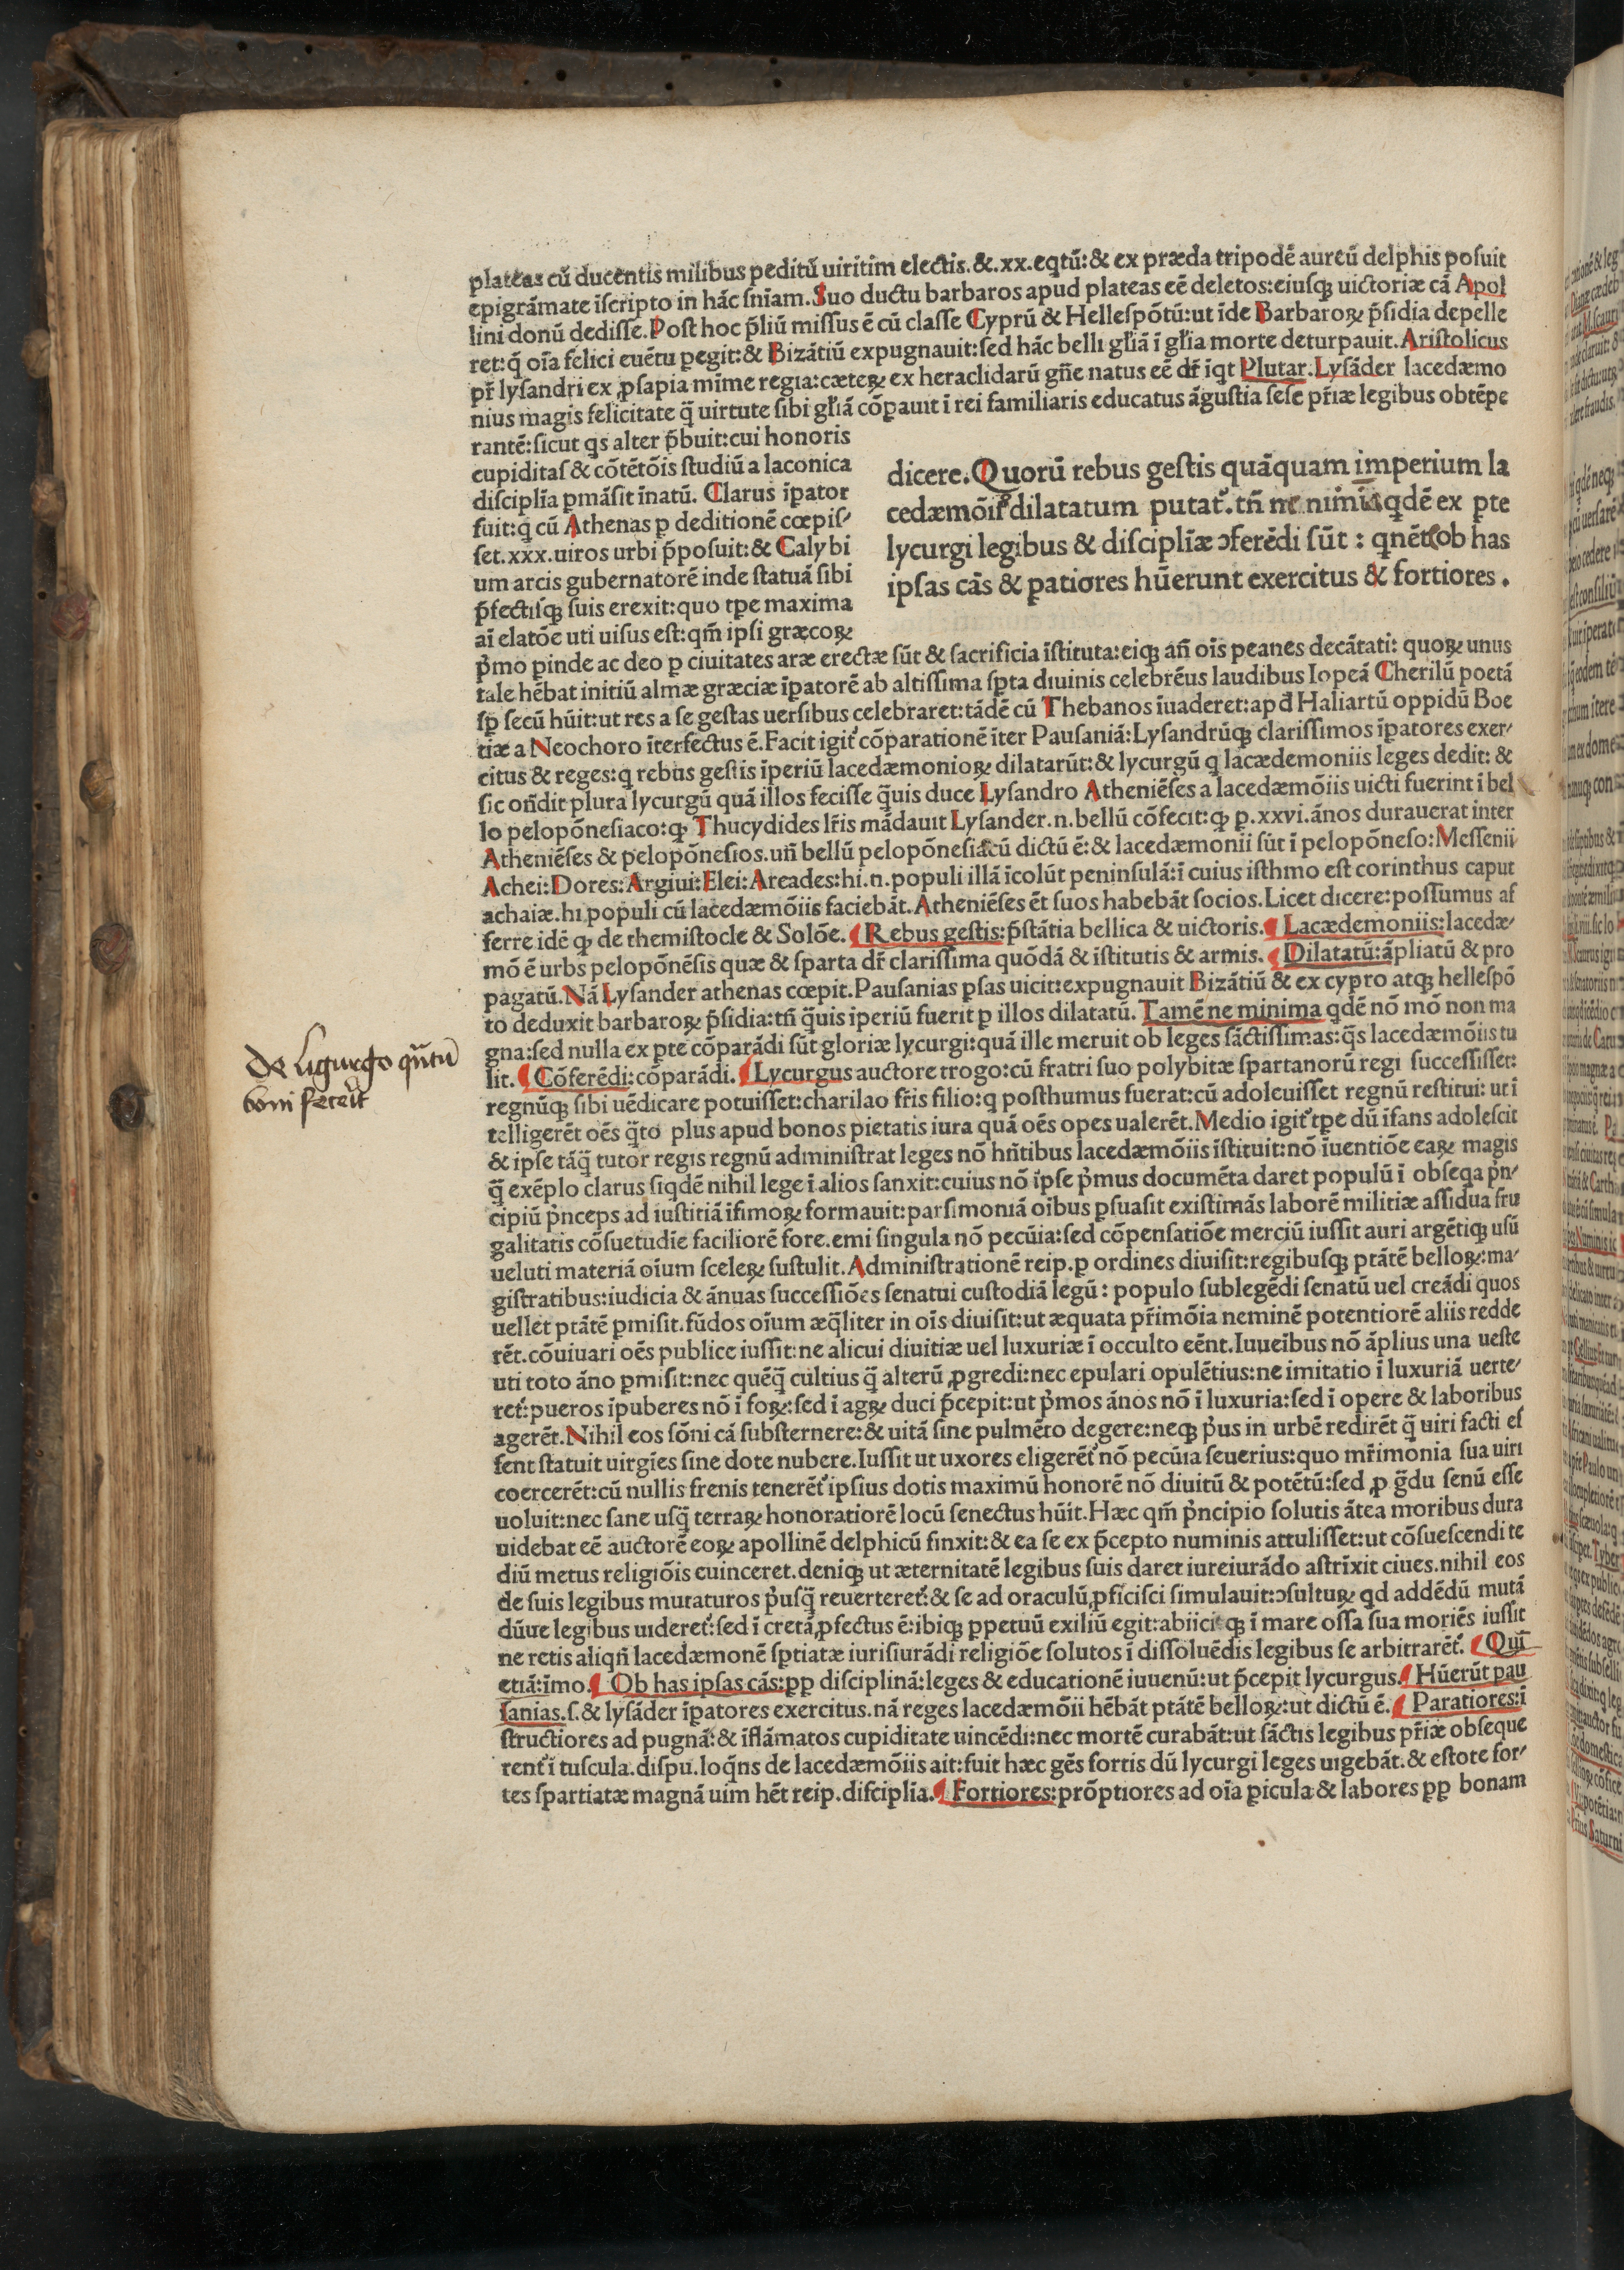 plateas cū ducentis milibus peditū uiritim electis.&.xx.eqtū:& ex præda tripodē aureū delphis posuit
epigrāmate īscripto in hāc snīam.Suo ductu barbaros apud plateas eē deletos:eiusqꝫ uictoriæ cā Apol
lini donū dedisse.Post hoc p̄liū missus ē cū classe Cyprū & Hellespōtū:ut īde Barbaroꝝ p̄sidia depelle
ret:q̄ oīa felici euētu ꝑegit:& Bizātiū expugnauit:sed hāc belli gl̄iā ī gl̄ia morte deturpauit.Aristolicus
pr̄ lysandri ex ꝓsapia mīme regia:cæteꝝ ex heraclidarū gn̄e natus eē dr̄ īqt Plutar.Lysāder lacedæmo
nius magis felicitate q̄ uirtute sibi gl̄iā cōpauit ī rei familiaris educatus āgustia sese pr̄iæ legibus obtēpe
rantē:sicut qs alter p̄buit:cui honoris
cupiditas & cōtētōis studiū a laconica
disciplīa ꝑmāsit īnatū. Clarus īpator
fuit:q cū Athenas ꝑ deditionē cœpis⸗
set.xxx.uiros urbi p̄posuit:& Calybi
um arcis gubernatorē inde statuā sibi
p̄fectisqꝫ suis erexit:quo tꝑe maxima
aī elatōe uti uisus est:qm̄ ipsi græcoꝝ
dicere.Quorū rebus gestis quāquam imperium la
cedæmōiꝝ dilatatum putat᷑.tn̄ ne nimia qdē ex ꝑte
lycurgi legibus & disciplīæ ↄferēdi sūt : qnēt ob has
ipsas cās & ꝑatiores hūerunt exercitus & fortiores.
pͥmo ꝑinde ac deo ꝑ ciuitates aræ erectæ sūt & sacrificia īstituta:eiqꝫ an̄ oīs peanes decātati: quoꝝ unus
tale hēbat initiū almæ græciæ īpatorē ab altissima sꝑta diuinis celebrēus laudibus Iopeā Cherilū poetā
sꝑ secū hūit:ut res a se gestas uersibus celebraret:tādē cū Thebanos īuaderet:apđ Haliartū oppidū Boe
tiæ a Neochoro īterfectus ē.Facit igit᷑ cōparationē īter Pausaniā:Lysandrūqꝫ clarissimos īpatores exer⸗
citus & reges:q rebus gestis īperiū lacedæmonioꝝ dilatarūt:& lycurgū q lacædemoniis leges dedit: &
sic on̄dit plura lycurgū quā illos fecisse q̄uis duce Lysandro Atheniēses a lacedæmōiis uicti fuerint ī bel
lo pelopōnesiaco:ꝙ Thucydides lr̄is mādauit Lysander.n.bellū cōfecit:ꝙ ꝑ.xxvi.ānos durauerat inter
Atheniēses & pelopōnesios.un̄ bellū pelopōnesiacū dictū ē:& lacedæmonii sūt ī pelopōneso:Messenii
Achei:Dores:Argiui:Elei:Areades:hi.n.populi illā īcolūt peninsulā:ī cuius isthmo est corinthus caput
achaiæ.hi populi cū lacedæmōiis faciebāt.Atheniēses ēt suos habebāt socios.Licet dicere:possumus af
ferre idē ꝙ de themistocle & Solōe.¶ Rebus gestis:p̄stātia bellica & uictoris.¶ Lacædemoniis:lacedæ⸗
mō ē urbs pelopōnēsis quæ & sparta dr̄ clarissima quōdā & īstitutis & armis.¶ Dilatatū:āpliatū & pro
pagatū.Nā Lysander athenas cœpit.Pausanias ꝑsas uicit:expugnauit Bizātiū & ex cypro atqꝫ hellespō
to deduxit barbaroꝝ p̄sidia:tn̄ q̄uis īperiū fuerit ꝑ illos dilatatū. Tamē ne minima qdē nō mō non ma
gna:sed nulla ex ꝑte cōparādi sūt gloriæ lycurgi:quā ille meruit ob leges sāctissimas:q̄s lacedæmōiis tu
lit.¶ Cōferēdi:cōparādi.¶ Lycurgus auctore trogo:cū fratri suo polybitæ spartanorū regi successisset:
regnūqꝫ sibi uēdicare potuisset:charilao fr̄is filio:q posthumus fuerat:cū adoleuisset regnū restitui: ut ī
telligerēt oēs q̄to plus apud bonos pietatis iura quā oēs opes ualerēt.Medio igit᷑ tꝑe dū īfans adolescit
& ipse tāq̄ tutor regis regnū administrat leges nō hn̄tibus lacedæmōiis īstituit:nō īuentiōe eaꝝ magis
q̄ exēplo clarus siqdē nihil lege ī alios sanxit:cuius nō īpse pͥmus documēta daret populū ī obseqa pͥn⸗
cipiū pͥnceps ad iustitiā īfimoꝝ formauit:parsimoniā oībus ꝑsuasit existimās laborē militiæ assidua fru
galitatis cōsuetudīe faciliorē fore.emi singula nō pecūia:sed cōpensatiōe merciū iussit auri argētiqꝫ usū
ueluti materiā oīum sceleꝝ sustulit.Administrationē reip.ꝑ ordines diuisit:regibusqꝫ ptātē belloꝝ:ma⸗
gistratibus:iudicia & ānuas successiōes senatui custodiā legū: populo sublegēdi senatū uel creādi quos
uellet ptātē ꝑmisit.fūdos oīum æq̄liter in oīs diuisit:ut æquata pr̄imōia neminē potentiorē aliis redde
rēt.cōuiuari oēs publice iussit:ne alicui diuitiæ uel luxuriæ ī occulto eēnt.Iuueībus nō āplius una ueste
uti toto āno ꝑmisit:nec quēq̄ cultius q̄ alterū ꝓgredi:nec epulari opulētius:ne imitatio ī luxuriā uerte⸗
ret᷑:pueros īpuberes nō ī foꝝ:sed ī agꝝ duci p̄cepit:ut pͥmos ānos nō ī luxuria:sed ī opere & laboribus
agerēt.Nihil eos sōni cā substernere:& uitā sine pulmēto degere:neqꝫ pͥus in urbē redirēt q̄ uiri facti es
sent statuit uirgīes sine dote nubere.Iussit ut uxores eligerēt᷑ nō pecūia seuerius:quo mr̄imonia sua uiri
coercerēt:cū nullis frenis tenerēt᷑ ipsius dotis maximū honorē nō diuitū & potētū:sed ꝓ g̃du senū esse
uoluit:nec sane usq̄ terraꝝ honoratiorē locū senectus hūit.Hæc qm̄ pͥncipio solutis ātea moribus dura
uidebat eē auctorē eoꝝ apollinē delphicū finxit:& ea se ex p̄cepto numinis attulisset:ut cōsuescendi te
diū metus religiōis euinceret.deniqꝫ ut æternitatē legibus suis daret iureiurādo astrīxit ciues.nihil eos
de suis legibus muraturos pͥusq̄ reuerteret᷑:& se ad oraculū ꝓficisci simulauit:ↄsultuꝝ qd addēdū mutā
dūue legibus uideret᷑:sed ī cretā ꝓfectus ē:ibiqꝫ ꝑpetuū exiliū egit:abiiciqꝫ ī mare ossa sua moriēs iussit
ne retis aliqn̄ lacedæmonē sꝑtiatæ iurisiurādi religiōe solutos ī dissoluēdis legibus se arbitrarēt᷑. ¶ Quī
etiā:īmo.¶ Ob has ipsas cās:ꝑꝑ disciplinā:leges & educationē iuuenū:ut p̄cepit lycurgus.¶ Hūerūt pau
sanias.s.& lysāder īpatores exercitus.nā reges lacedæmōii hēbāt ptātē belloꝝ:ut dictū ē.¶ Paratiores:ī
structiores ad pugnā:& īflāmatos cupiditate uincēdi:nec mortē curabāt:ut sāctis legibus pr̄iæ obseque
rent᷑ ī tuscula.dispu.loq̄ns de lacedæmōiis ait:fuit hæc gēs fortis dū lycurgi leges uigebāt.& estote for⸗
tes spartiatæ magnā uim hēt reip.disciplīa.¶ Fortiores:prōptiores ad oīa ꝑicula & labores ꝑꝑ bonam
De Ligurgo qn̄tū
boni fecerit